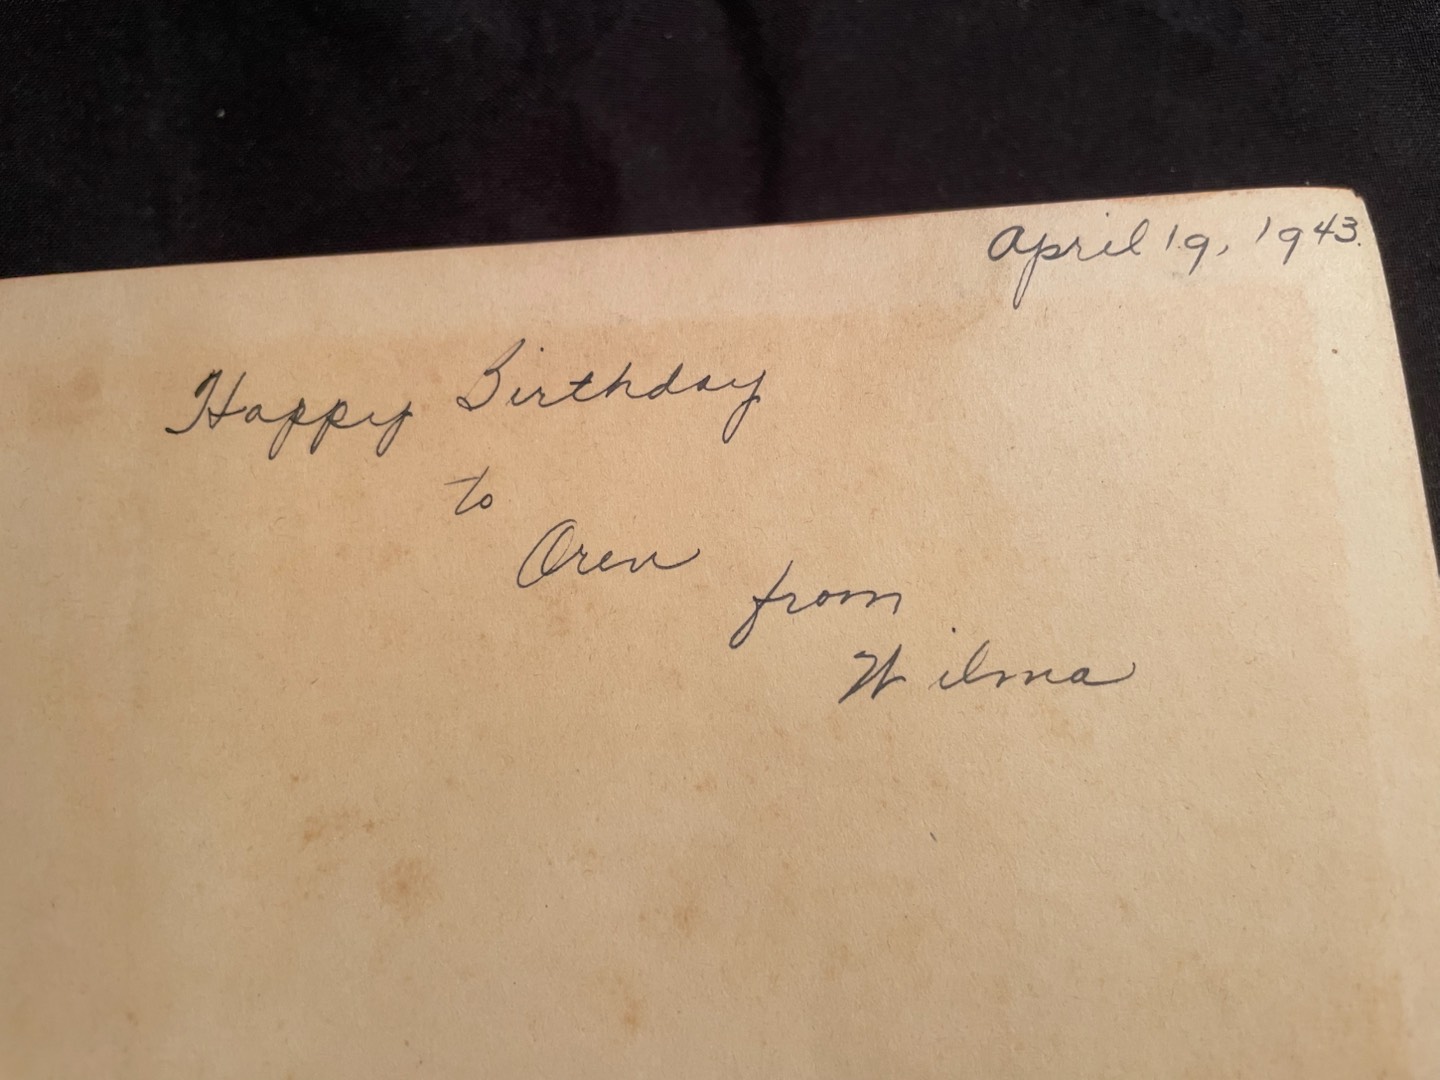 April 19, 1943.
Happy Birthday
to
Oren
from
Wilma